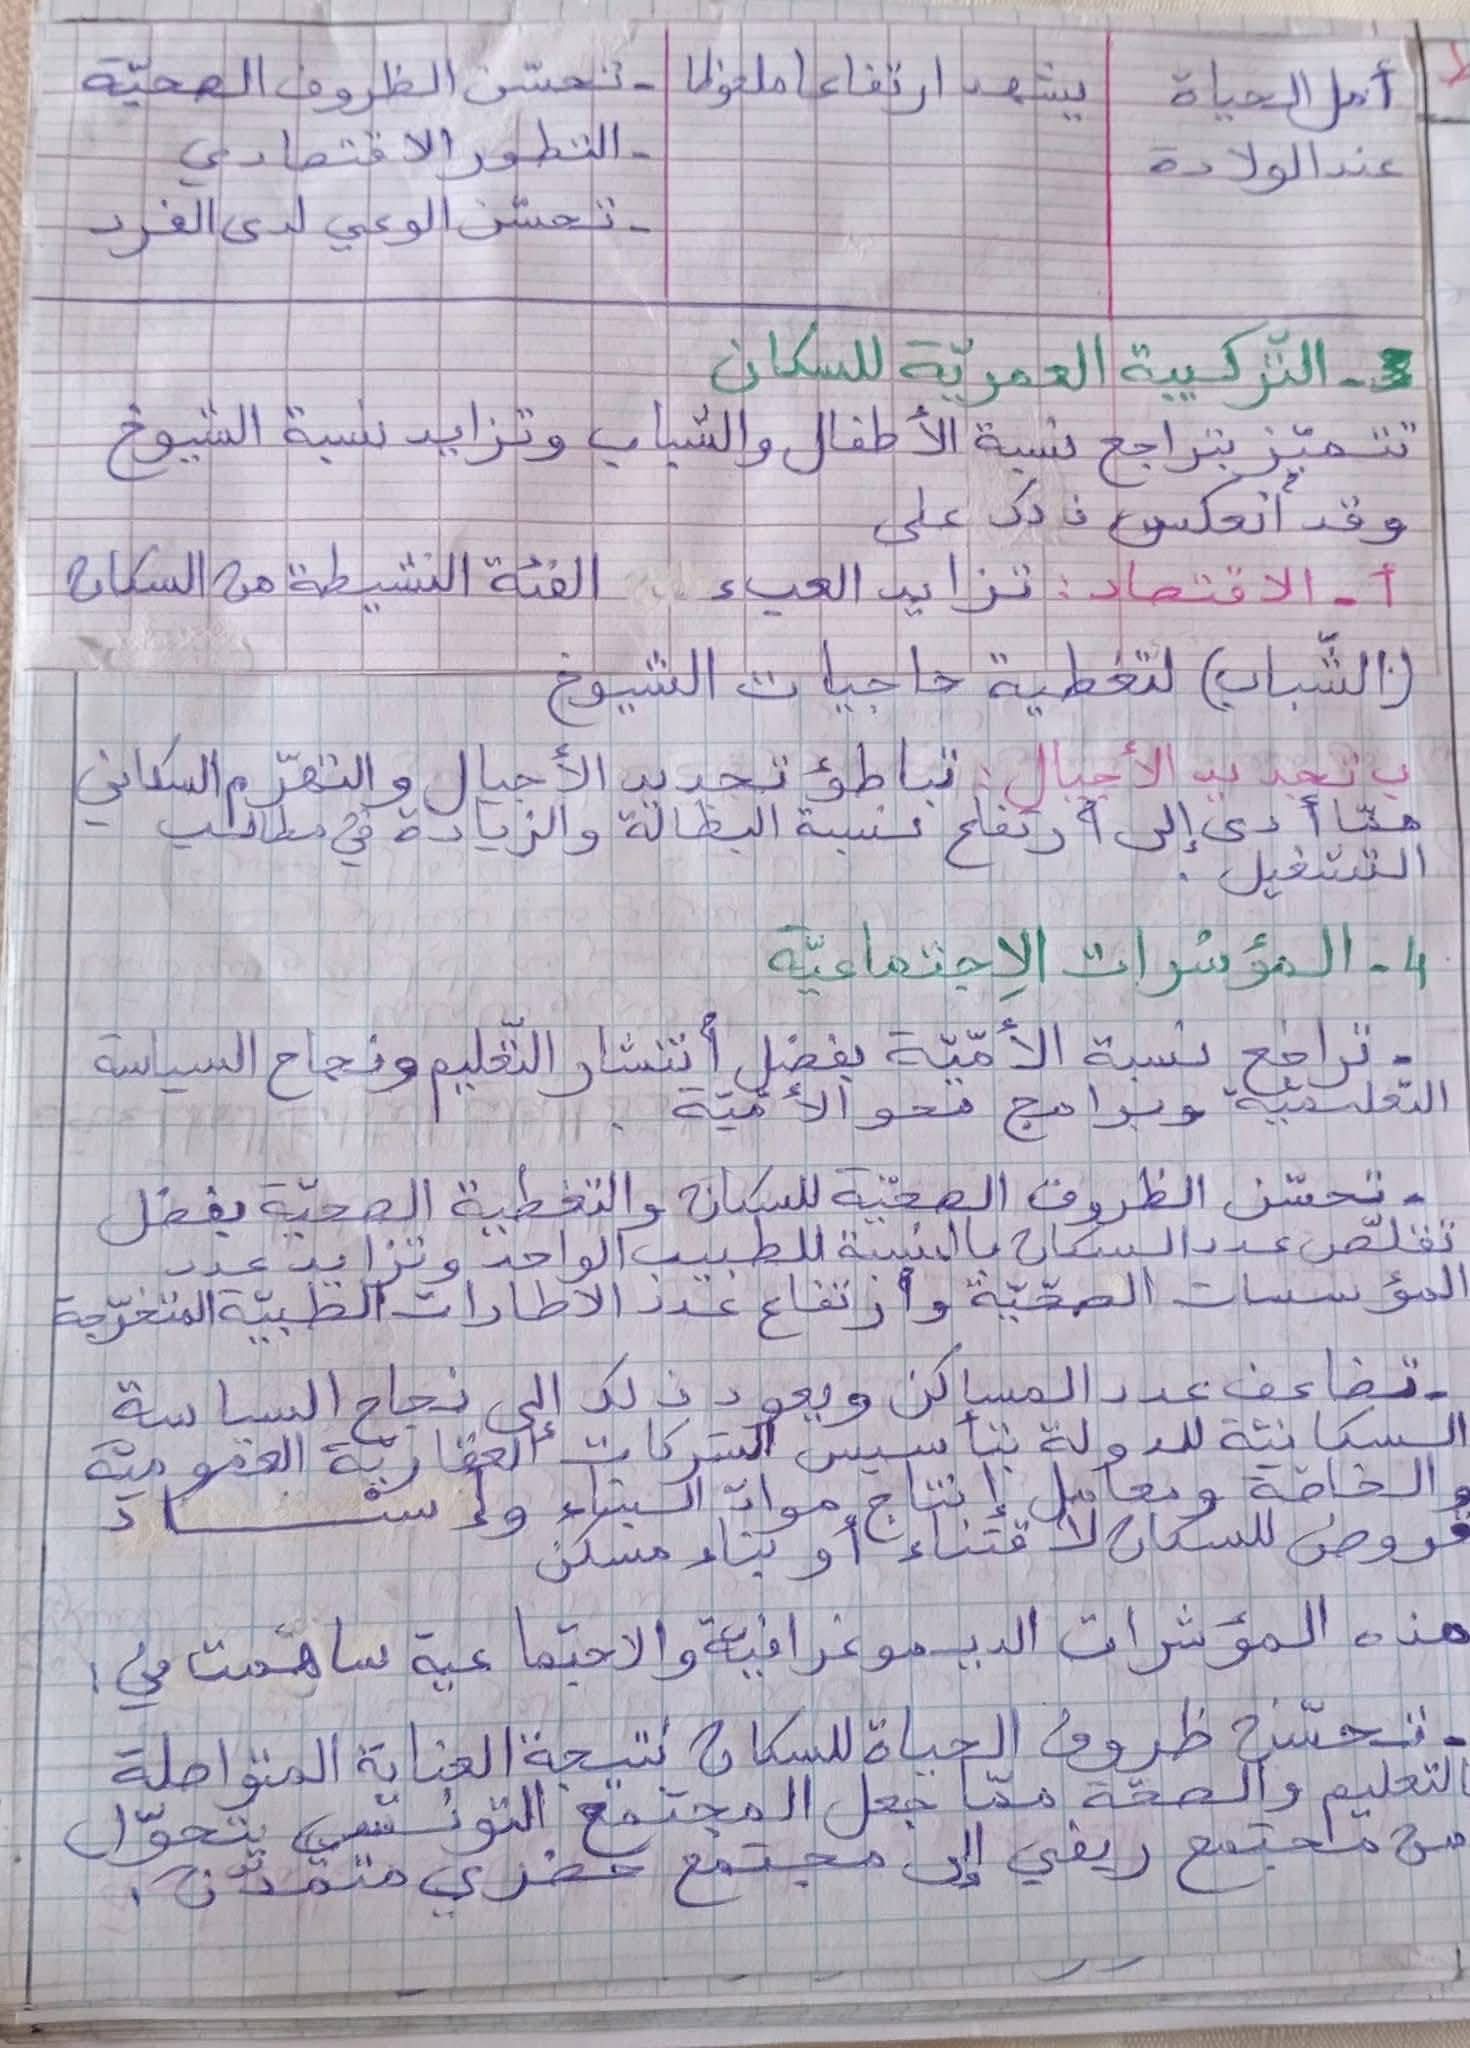 أمل الحياة
عند الولادة
يشهد ارتفاعا ملحوظا
- تحسّن الظروف الصحيّة
- التطور الاقتصادي
- تحسّن الوعي لدى الفرد
3- التّركيبة العمريّة للسكان
تتميّز بتراجع نسبة الأطفال والشباب وتزايد نسبة الشيوخ
وقد أنعكس ذلك على
أ- الاقتصاد: تزايد العبء الفئة النشيطة من السكان
(الشّباب) لتغطية حاجيات الشيوخ
ب تجديد الأجيال: تباطؤ تجديد الأجيال والتهرّم السكاني
ممّا أدى إلى أرتفاع نسبة البطالة والزيادة في مطالب
التشغيل.
4- المؤشرات الإجتماعيّة
- تراجع نسبة الأمّيّة بفضل أنتشار التّعليم ونجاح السياسة
التّعليميّة وبرامج محو الأمّيّة.
- تحسّن الظروف الصحيّة للسكان والتغطية الصحيّة بفضل
تقلّص عدد السكان بالنسبة للطبيب الواحد وتزايد عدد
المؤسسات الصحّيّة وأرتفاع عدد الاطارات الطبيّة المتخرّجة
- تضاعف عدد المساكن ويعود ذلك إلى نجاح السياسة
السكانيّة للدولة بتأسيس الشركات العقاريّة العموميّة
والخاصّة ومعامل إنتاج موادّ البناء وإسناد
قروض للسكان لاقتناء أو بناء مسكن
هذه المؤشرات الديموغرافيّة والاجتماعية ساهمت في:
- تحسّن ظروف الحياة للسكان نتيجة العناية المتواصلة
بالتعليم والصحّة ممّا جعل المجتمع التونسي يتحوّل
من مجتمع ريفي إلى مجتمع حضري متمدّن.